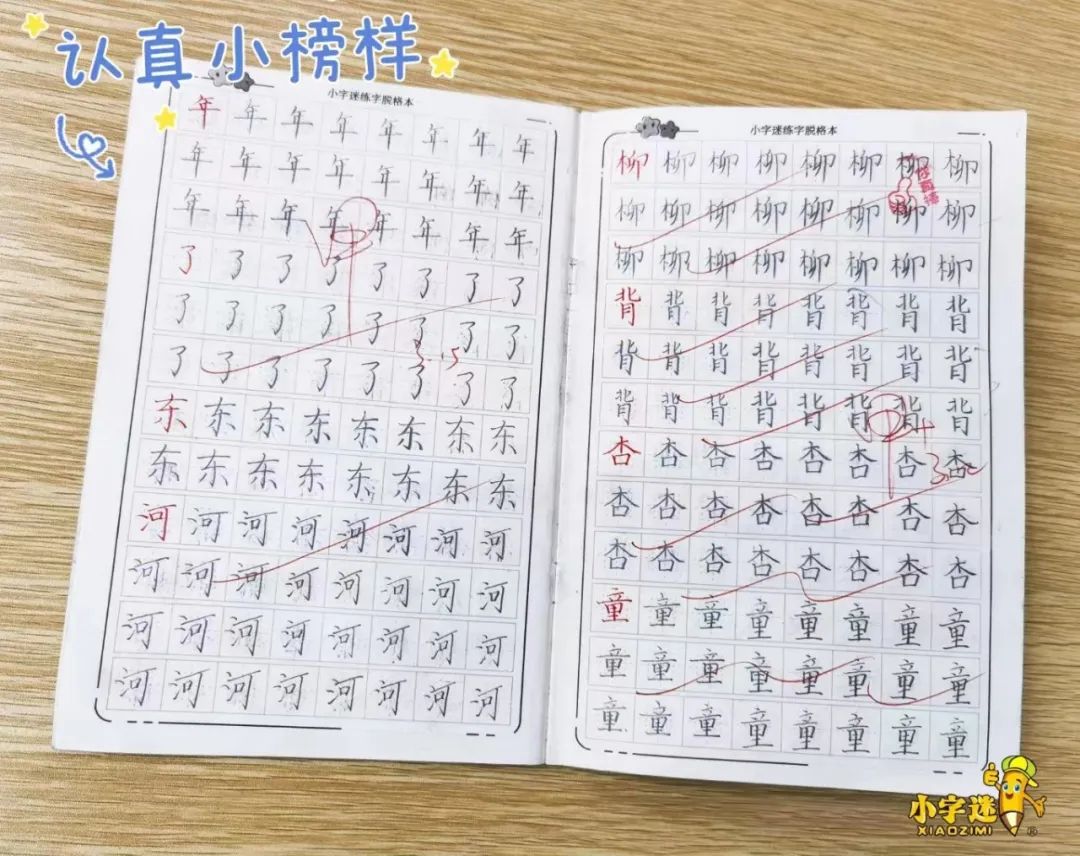 认真小榜样
小字迷练字脱格本
年年年年年年年年
年年年年年年年年
年年年年年年年年
了了了了了了了了
了了了了了了了了
了了了了了了了了
3.15
东东东东东东东东
东东东东东东东东
河河河河河河河河
河河河河河河河河
河河河河河河河河
河河河河河河河河
小字迷练字脱格本
柳柳柳柳柳柳柳柳
柳柳柳柳柳柳柳柳
柳柳柳柳柳柳柳柳
背背背背背背背背
背背背背背背背背
背背背背背背背背
杏杏杏杏杏杏杏杏
杏杏杏杏杏杏杏杏
杏杏杏杏杏杏杏杏
童童童童童童童童
童童童童童童童童
童童童童童童童童
小字迷®
XIAOZIMI